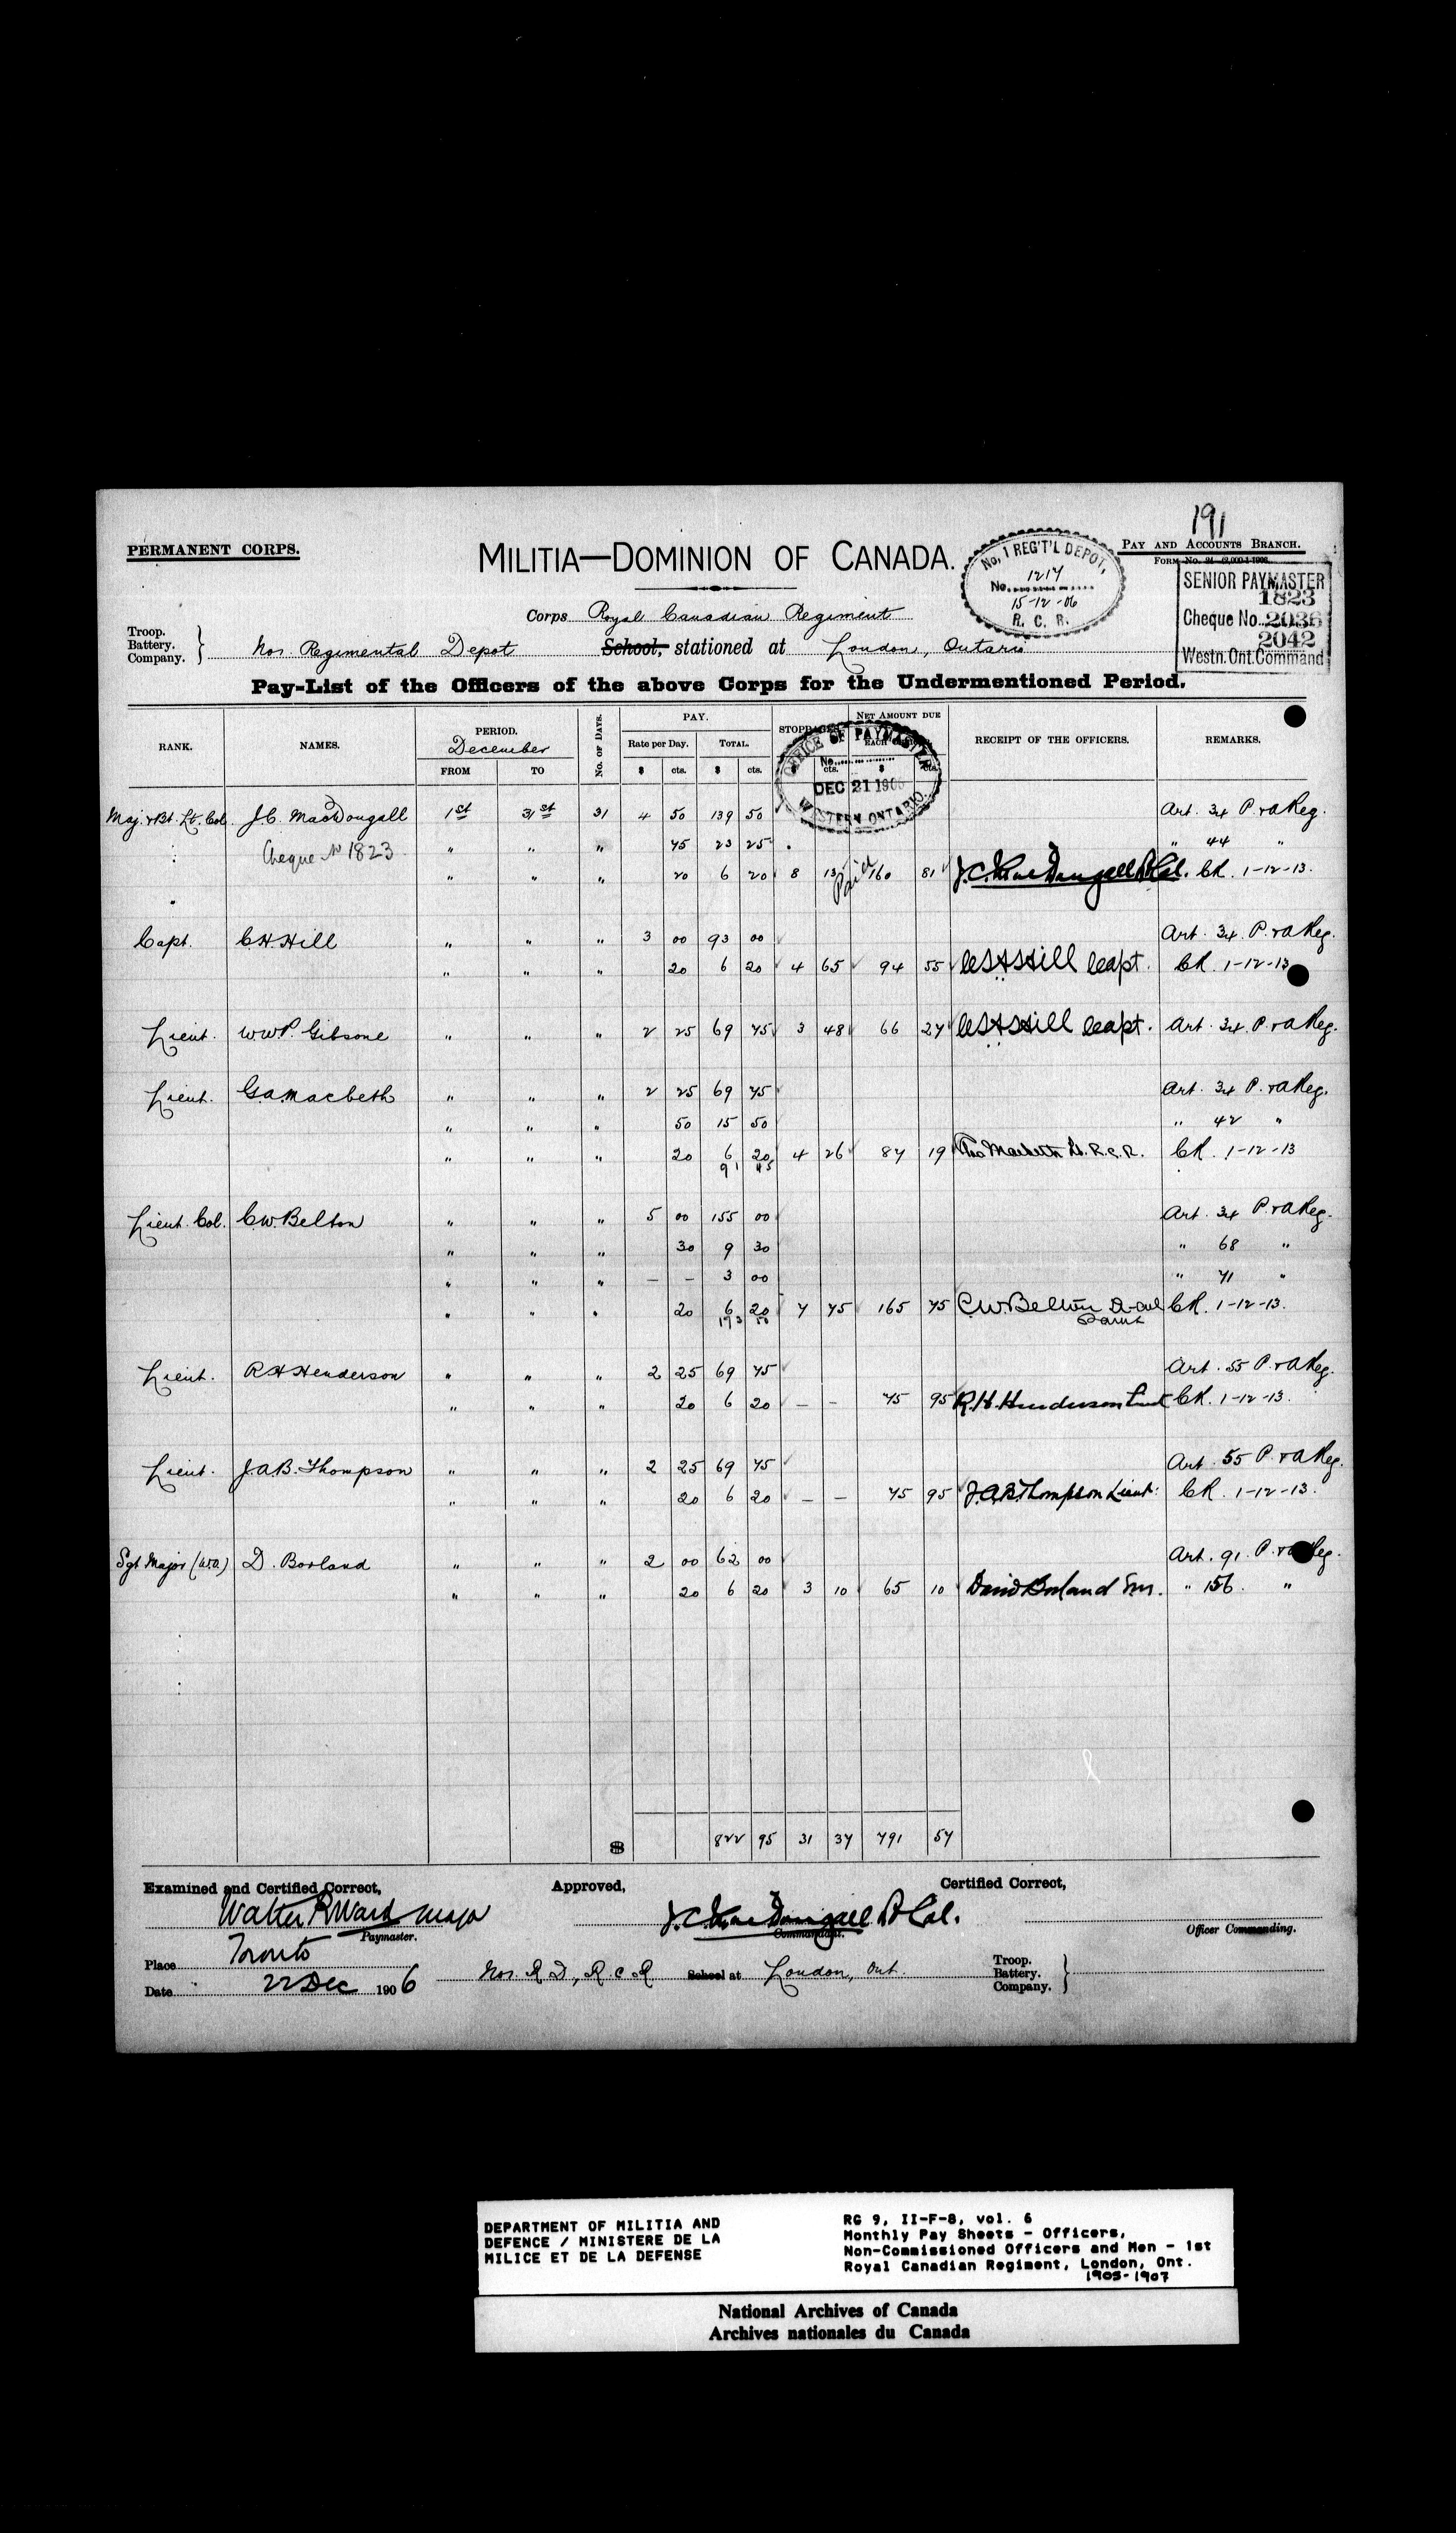 191
PERMANENT CORPS.
MILITIA—DOMINION OF CANADA.
PAY AND ACCOUNTS BRANCH.
No. 1 REG'T'L DEPOT,
No. 1217
15-12-06
R. C. R.
SENIOR PAYMASTER
1823
Cheque No. 2036
2042
Westn. Ont. Command
Corps Royal Canadian Regiment
Troop.
Battery.
Company.
No1 Regimental Depot School, stationed at London, Ontario
Pay-List of the Officers of the above Corps for the Undermentioned Period.
RANK. NAMES. PERIOD. No. of Days. PAY. STOPPAGES NET AMOUNT DUE EACH RECEIPT OF THE OFFICERS. REMARKS.
December Rate per Day. TOTAL.
FROM TO $ cts. $ cts. cts. $ cts.
OFFICE OF PAYMASTER
No.
DEC 21 190
WESTERN ONTARIO.
Maj. & Bt. Lt. Col. J.C. MacDougall 1st 31st 31 4 50 139 50 Art. 34 P. & A Reg.
Cheque No 1823 " " " 75 23 25 " 44 "
" " " 20 6 20 8 13 Paid 160 81 J.C. MacDougall Lt Col. CR. 1-12-13.
Capt. C.H. Hill " " " 3 00 93 00 Art. 34. P. & A Reg.
" " " 20 6 20 4 65 94 55 C.H. Hill Capt. CR. 1-12-13
Lieut. W.W.P. Gibsone " " " 2 25 69 75 3 48 66 27 C.H. Hill Capt. Art. 34. P. & A Reg.
Lieut. G.A. Macbeth " " " 2 25 69 75 Art. 34 P. & A Reg.
" " " 50 15 50 " 42 "
" " " 20 6 20 4 26 87 19 Macbeth Lt. R.C.R. CR. 1-12-13
91 45
Lieut. Col. C.W. Belton " " " 5 00 155 00 Art. 34 P. & A Reg.
" " " 30 9 30 " 68 "
" " " — – 3 00 " 71 "
" " " 20 6 20 7 75 165 75 C.W. Belton Lt-Col CR. 1-12-13.
173 50
Lieut. R.H. Henderson " " " 2 25 69 75 Art. 55 P. & A Reg.
" " " 20 6 20 — – 75 95 R.H. Henderson Lieut CR. 1-12-13.
Lieut. J.A.B. Thompson " " " 2 25 69 75 Art. 55 P. & A Reg.
" " " 20 6 20 — — 75 95 J.A.B. Thompson Lieut. CR. 1-12-13.
Sgt Major (W.O.) D. Borland " " " 2 00 62 00 Art. 91. P. & A Reg.
" " " 20 6 20 3 10 65 10 David Borland Sm. " 156. "
$ 822 95 31 37 791 57
Examined and Certified Correct, Approved, Certified Correct,
Walter R Ward Major J.C. MacDougall Lt Col.
Paymaster. Commandant. Officer Commanding.
Place Toronto
Date 22 Dec 1906 No1 R D, R C R School at London, Ont.
Troop.
Battery.
Company.
DEPARTMENT OF MILITIA AND
DEFENCE / MINISTERE DE LA
MILICE ET DE LA DEFENSE
RG 9, II-F-8, vol. 6
Monthly Pay Sheets - Officers,
Non-Commissioned Officers and Men - 1st
Royal Canadian Regiment, London, Ont.
1905-1907
National Archives of Canada
Archives nationales du Canada